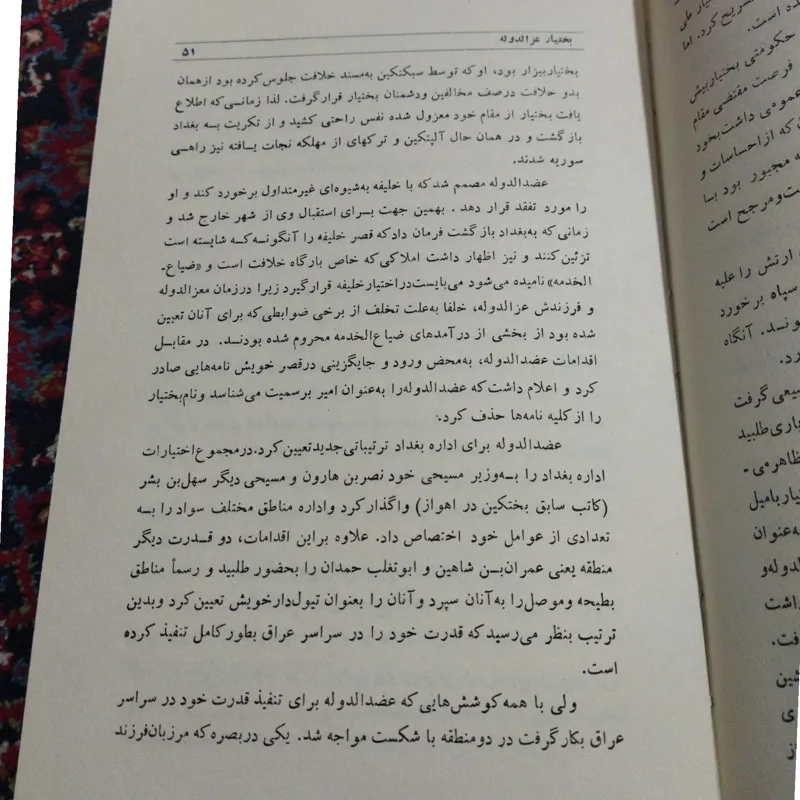 بختیار عزالدوله ۵۱
بختیاربیزار بود، او که توسط سبکتکین به‌مسند خلافت جلوس‌کرده بود ازهمان
بدو خلافت درصف مخالفین ودشمنان بختیار قرارگرفت. لذا زمانی‌که اطلاع
یافت بختیار از مقام خود معزول شده نفس راحتی کشید و از تکریت به بغداد
بازگشت و در همان حال آلپتکین و ترکهای از مهلکه نجات یافته نیز راهی
سوریه شدند.
عضدالدوله مصمم شدکه با خلیفه به‌شیوه‌ای غیرمتداول برخورد کند و او
را مورد تفقد قرار دهد. بهمین جهت برای استقبال وی از شهر خارج شد و
زمانی که به‌بغداد بازگشت فرمان دادکه قصر خلیفه را آنگونه‌که شایسته است
تزئین‌کنند و نیز اظهار داشت املاکی‌که خاص بارگاه خلافت است و «ضیاع‌-
الخدمه» نامیده می‌شود می‌بایست‌دراختیارخلیفه قرارگیرد زیرا درزمان معزالدوله
و فرزندش عزالدوله، خلفا به‌علت تخلف از برخی ضوابطی‌که برای آنان تعیین
شده بود از بخشی از درآمدهای ضیاع‌الخدمه محروم شده بودند. در مقابل
اقدامات عضدالدوله، به‌محض ورود و جایگزینی درقصر خویش نامه‌هایی صادر
کرد و اعلام داشت‌که عضدالدوله‌را به‌عنوان امیر برسمیت می‌شناسد ونام‌بختیار
را از کلیه نامه‌ها حذف کرد.
عضدالدوله برای اداره بغداد ترتیباتی‌جدیدتعیین‌کرد.درمجموع‌اختیارات
اداره بغداد را به‌وزیر مسیحی خود نصربن هارون و مسیحی دیگر سهل‌بن بشر
(کاتب سابق بختکین در اهواز) واگذارکرد واداره مناطق مختلف سواد را به
تعدادی از عوامل خود اختصاص داد. علاوه براین اقدامات، دو قدرت دیگر
منطقه یعنی عمران‌بن شاهین و ابوتغلب حمدان را بحضور طلبید و رسماً مناطق
بطیحه وموصل‌را به‌آنان سپرد وآنان را بعنوان تیول‌دارخویش تعیین‌کرد وبدین
ترتیب بنظر می‌رسیدکه قدرت خود را در سراسر عراق بطورکامل تنفیذ کرده
است.
ولی با همه‌کوشش‌هایی‌که عضدالدوله برای تنفیذ قدرت خود در سراسر
عراق بکارگرفت در دومنطقه با شکست مواجه شد. یکی دربصره‌که مرزبان‌فرزند
ده است.
حکومتی بختیاربیش
فرصت مقتضی مقام
عمومی داشت‌بخود
که ازاحساسات و
مجبور بود با
ت‌ومرجح است
ارتش را علیه
سپاه برخورد
آنگاه
رد.
گرفت
یاری‌طلبید
ظاهرمی-
یاربامیل
به‌عنوان
الدوله‌و
داشت